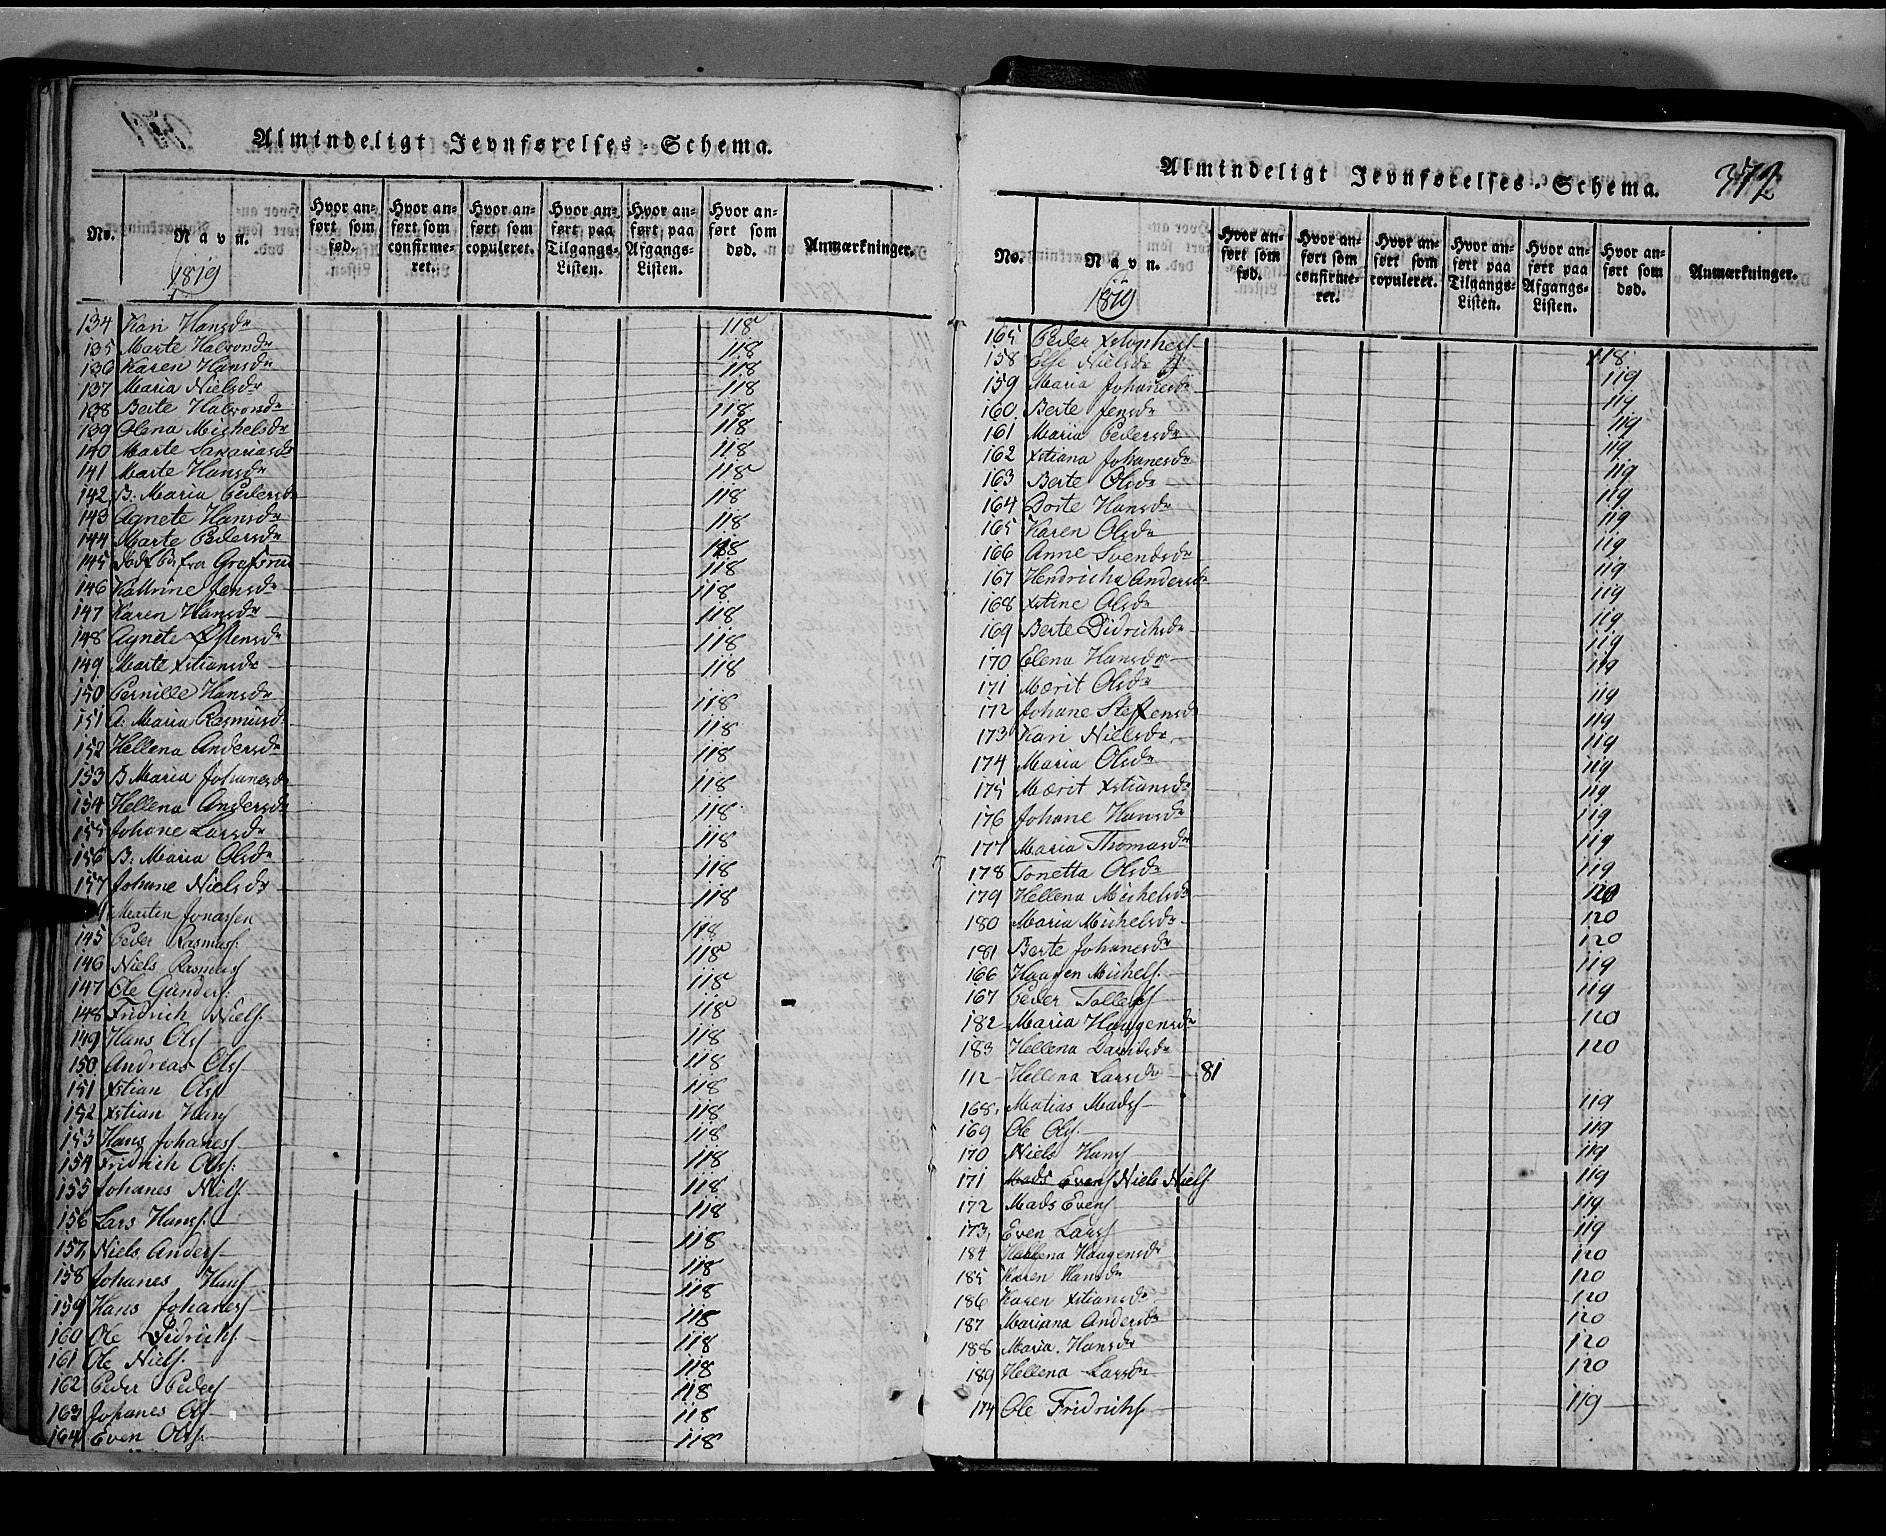 Almindeligt Jevnførelses-Schema.
No. Navn. Hvor anført som fød. Hvor anført som confirmeret. Hvor anført som copuleret. Hvor anført paa Tilgangs-Listen. Hvor anført paa Afgangs-Listen. Hvor anført som død. Anmærkninger.
1819
134 Kari Hansdr 118
135 Marte Halvorsdr 118
136 Karen Hansdr 118
137 Maria Nielsdr 118
138 Berte Halvorsdr 118
139 Olena Michelsdr 118
140 Marte Sakariasdr 118
141 Marte Hansdr 118
142 B: Maria Pedersdr 118
143 Agnete Hansdr 118
144 Marte Pedersdr 118
145 118
146 Kathrine Jensdr 118
147 Karen Hansdr 118
148 Agnete Østensdr 118
149 Marte Xstiansdr 118
150 Pernille Hansdr 118
151 A: Maria Rasmusdr 118
152 Hellena Andersdr 118
153 B Maria Johanesdr 118
154 Hellena Andersdr 118
155 Johane Larsdr 118
156 B: Maria Olsdr 118
157 Johane Nielsdr 118
Marten Jonassen 118
145 Peder Rasmuss: 118
146 Niels Rasmuss 118
147 Ole Gunders: 118
148 Fridrich Niels. 118
149 Hans Ols 118
150 Andreas Ols 118
151 Xstian Ols 118
152 Xstian Hans 118
153 Hans Johaness 118
154 Fridrich Ols: 118
155 Johanes Niels. 118
156 Lars Hans: 118
157 Niels Anders 118
158 Johanes Hans 118
159 Hans Johaness 118
160 Ole Didrichs. 118
161 Ole Niels. 118
162 Peder Peders 118
163 Johanes Ols 118
164 Even Ols 118
Almindeligt Jevnførelses-Schema. 372
No. Navn. Hvor anført som fød. Hvor anført som confirmeret. Hvor anført som copuleret. Hvor anført paa Tilgangs-Listen. Hvor anført paa Afgangs-Listen. Hvor anført som død. Anmærkninger.
1819
165 Peder Xstophers. 118
158 Else Nielsdr 119
159 Maria Johanesdr 119
160 Berte Jensdr 119
161 Maria Pedersdr 119
162 Xstiana Johanesdr 119
163 Berte Olsdr 119
164 Dorte Hansdr 119
165 Karen Olsdr 119
166 Anne Svendsdr 119
167 Hendricha Andersdr 119
168 Xstine Olsdr 119
169 Berte Didrichsdr 119
170 Elena Hansdr 119
171 Mærit Olsdr 119
172 Johane Steffensdr 119
173 Kari Nielsdr 119
174 Maria Olsdr 119
175 Mærit Xstiansdr 119
176 Johane Hansdr 119
177 Maria Thomasdr 119
178 Tonetta Olsdr 119
179 Hellena Michelsdr 120
180 Maria Michelsdr 120
181 Berte Johanesdr 120
166 Haagen Michels. 119
167 Peder Tollefs 119
182 Maria Haagensdr 120
183 Hellena Davidsdr 120
112 Hellena Larsdr 81
168, Matias Mads 119
169 Ole Ols. 119
170 Niels Hans 119
171 Mads Evens Niels Niels 119
172 Mads Evens 119
173, Even Lars 119
184 Hellena Haagensdr 120
185 Karen Hansdr 120
186 Karen Xstiansdr 120
187 Mariana Andersdr 120
188 Maria. Hansdr 120
189 Hellena Larsdr 120
174 Ole Fridrichs 119